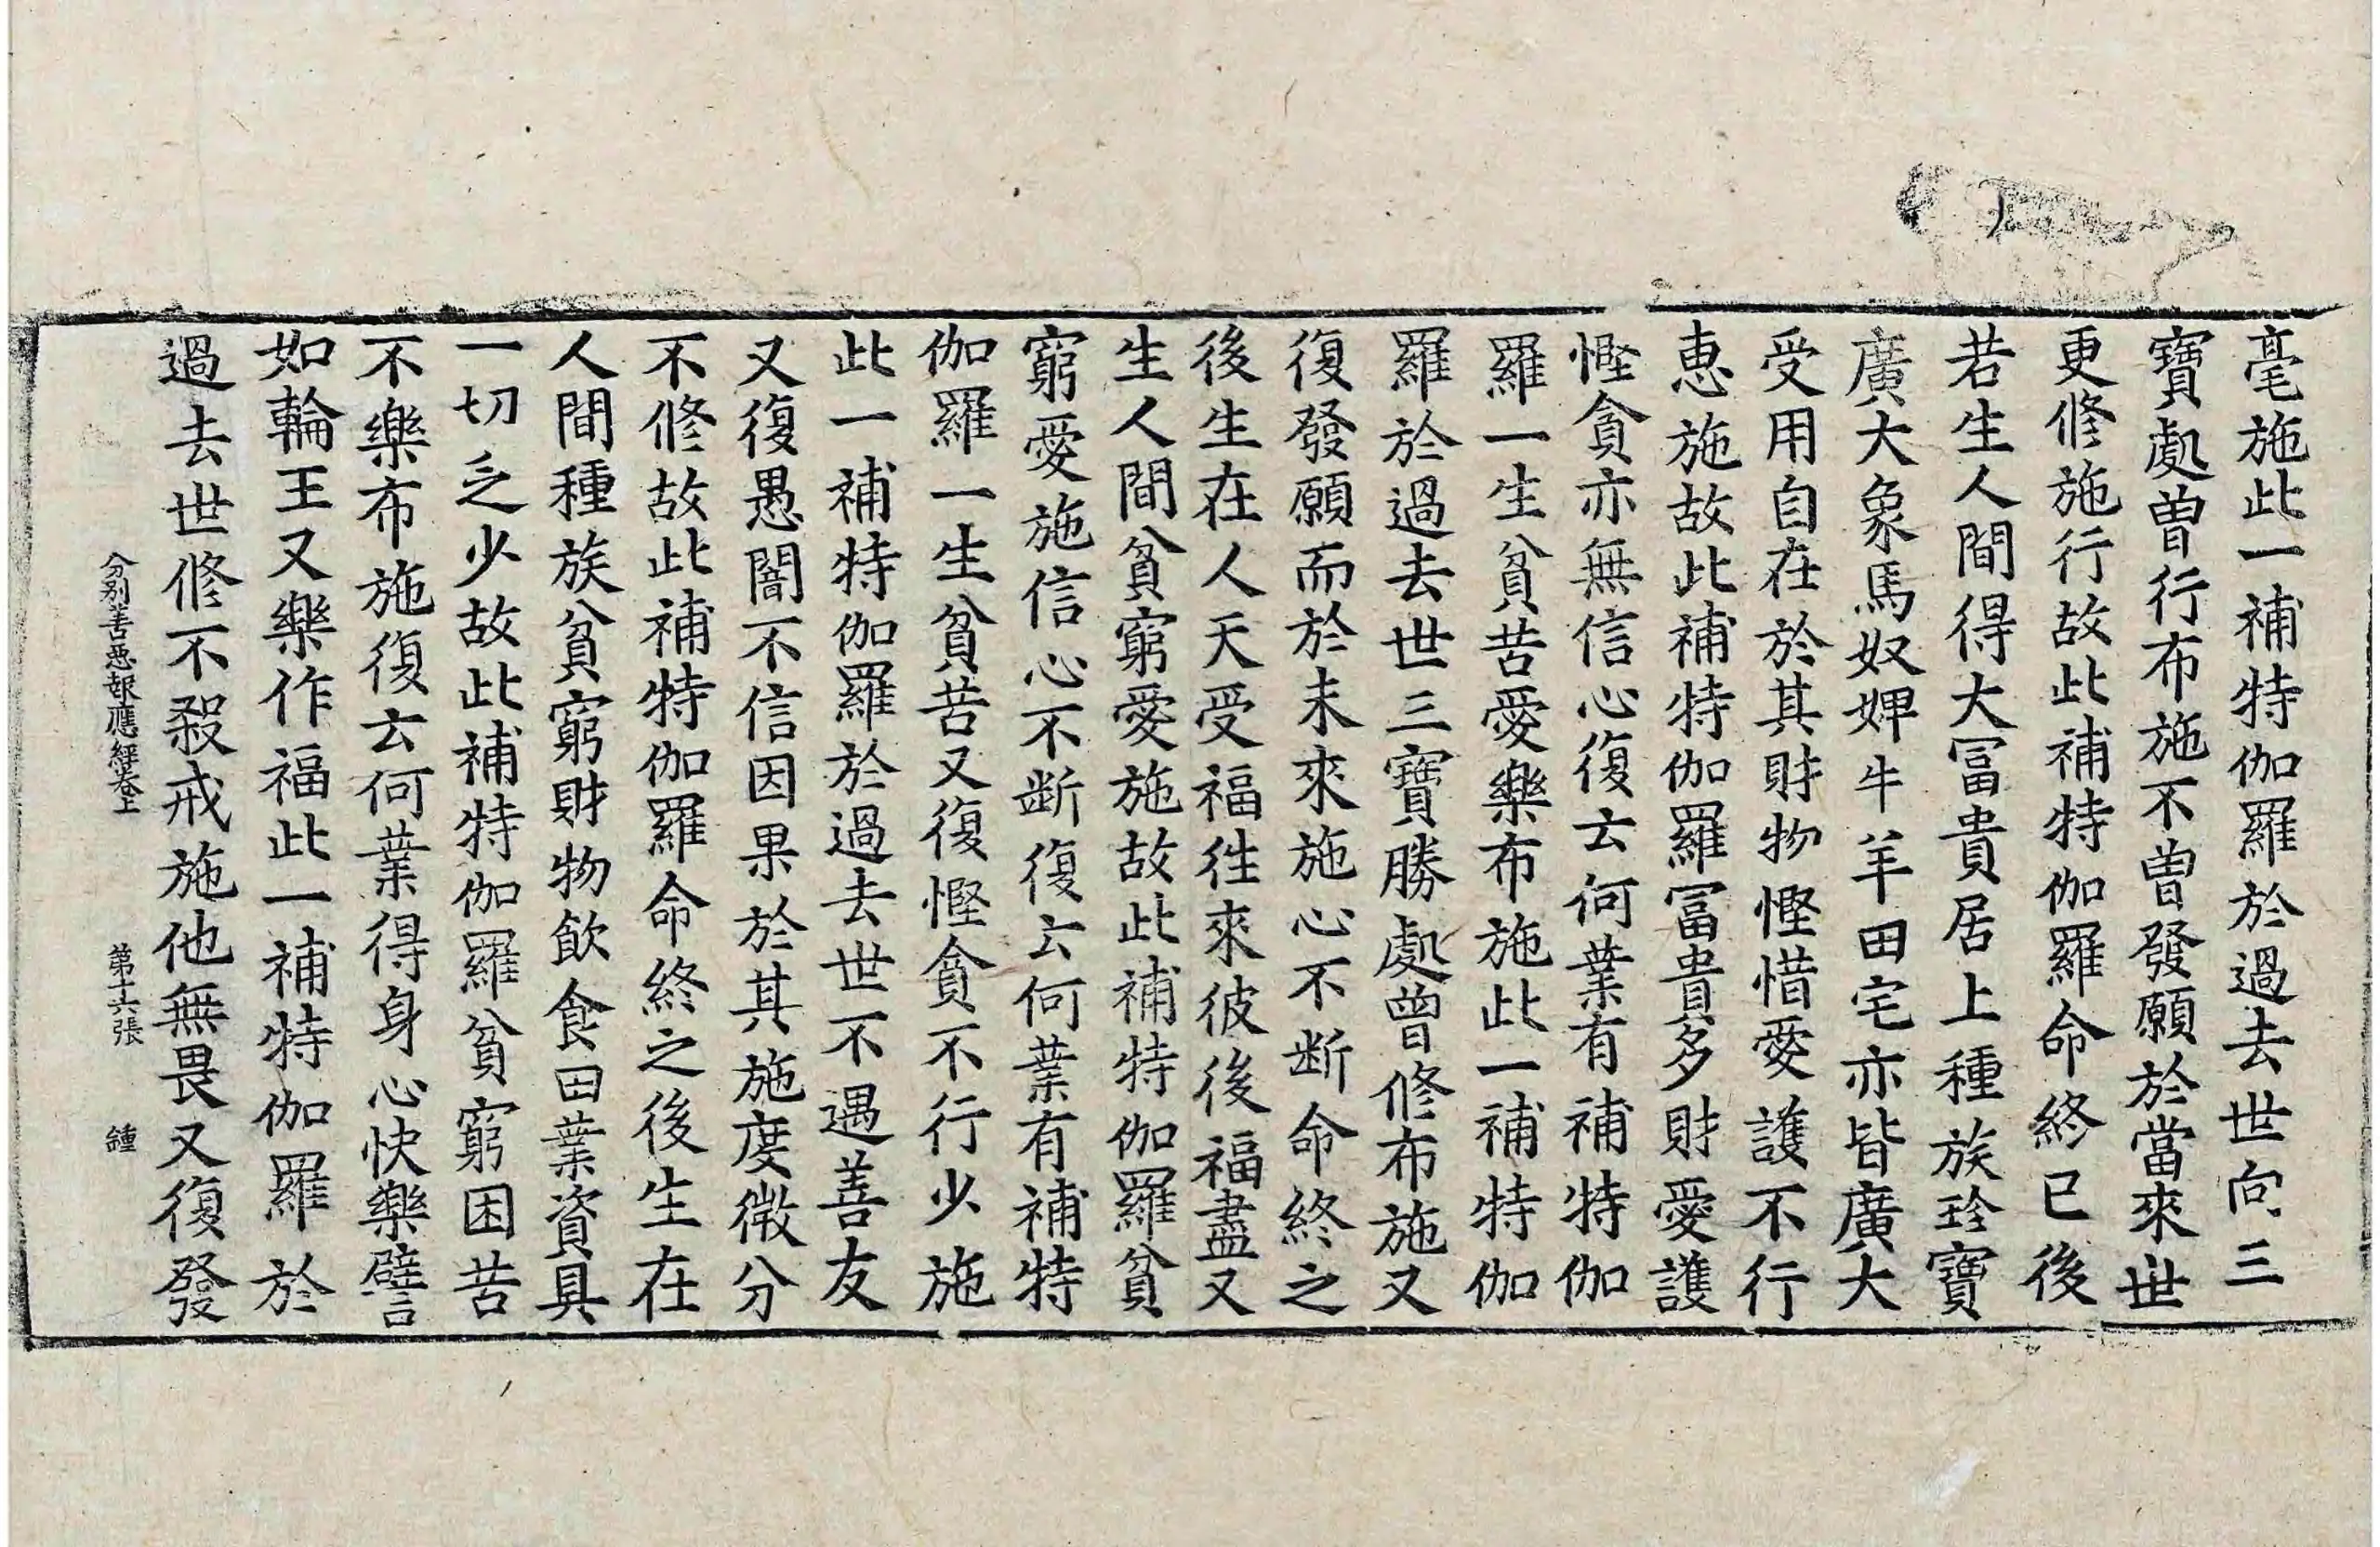 毫施此一補特伽羅於過去世向三
寶處曾行布施不曾發願於當來世
更修施行故此補特伽羅命終已後
若生人間得大冨貴居上種族珎寶
廣大象馬奴婢牛羊田宅亦皆廣大
受用自在於其財物慳惜愛護不行
惠施故此補特伽羅冨貴多財愛護
慳貪亦無信心復云何業有補特伽
羅一生貧苦愛樂布施此一補特伽
羅於過去世三寶勝處曾修布施又
復發願而於未來施心不断命終之
後生在人天受福徃來彼後福盡又
生人間貧窮愛施故此補特伽羅貧
窮愛施信心不断復云何業有補特
伽羅一生貧苦又復慳貪不行少施
此一補特伽羅於過去世不遇善友
又復愚闇不信因果於其施度微分
不修故此補特伽羅命終之後生在
人間種族貧窮財物飲食田業資具
一切乏少故此補特伽羅貧窮困苦
不樂布施復云何業得身心快樂譬
如輪王又樂作福此一補特伽羅於
過去世修不殺戒施他無畏又復發
分别善惡報應經卷上　第十六張　鍾